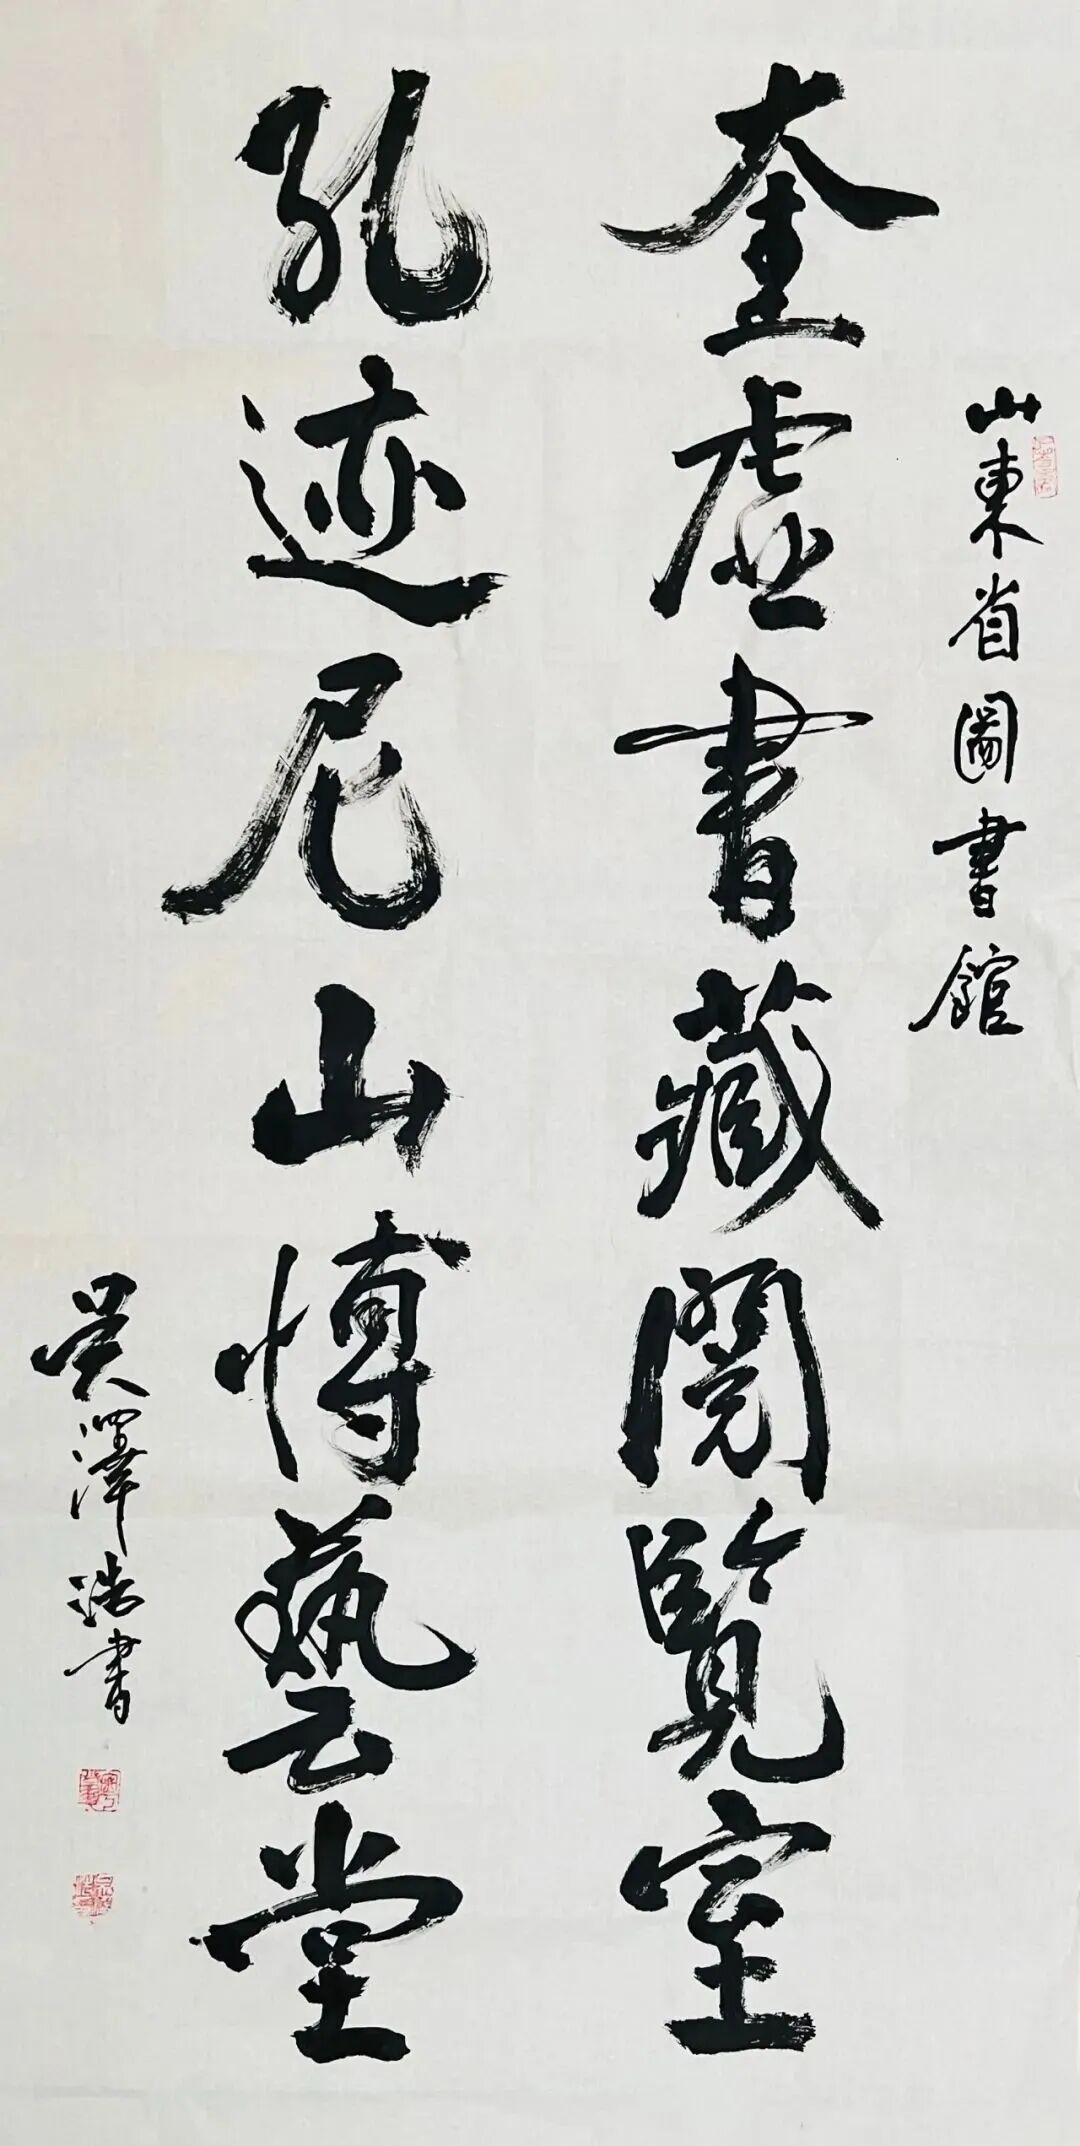 山東省圖書館
奎虛書藏閱覽室
孔迹尼山博藝堂
吴澤浩書